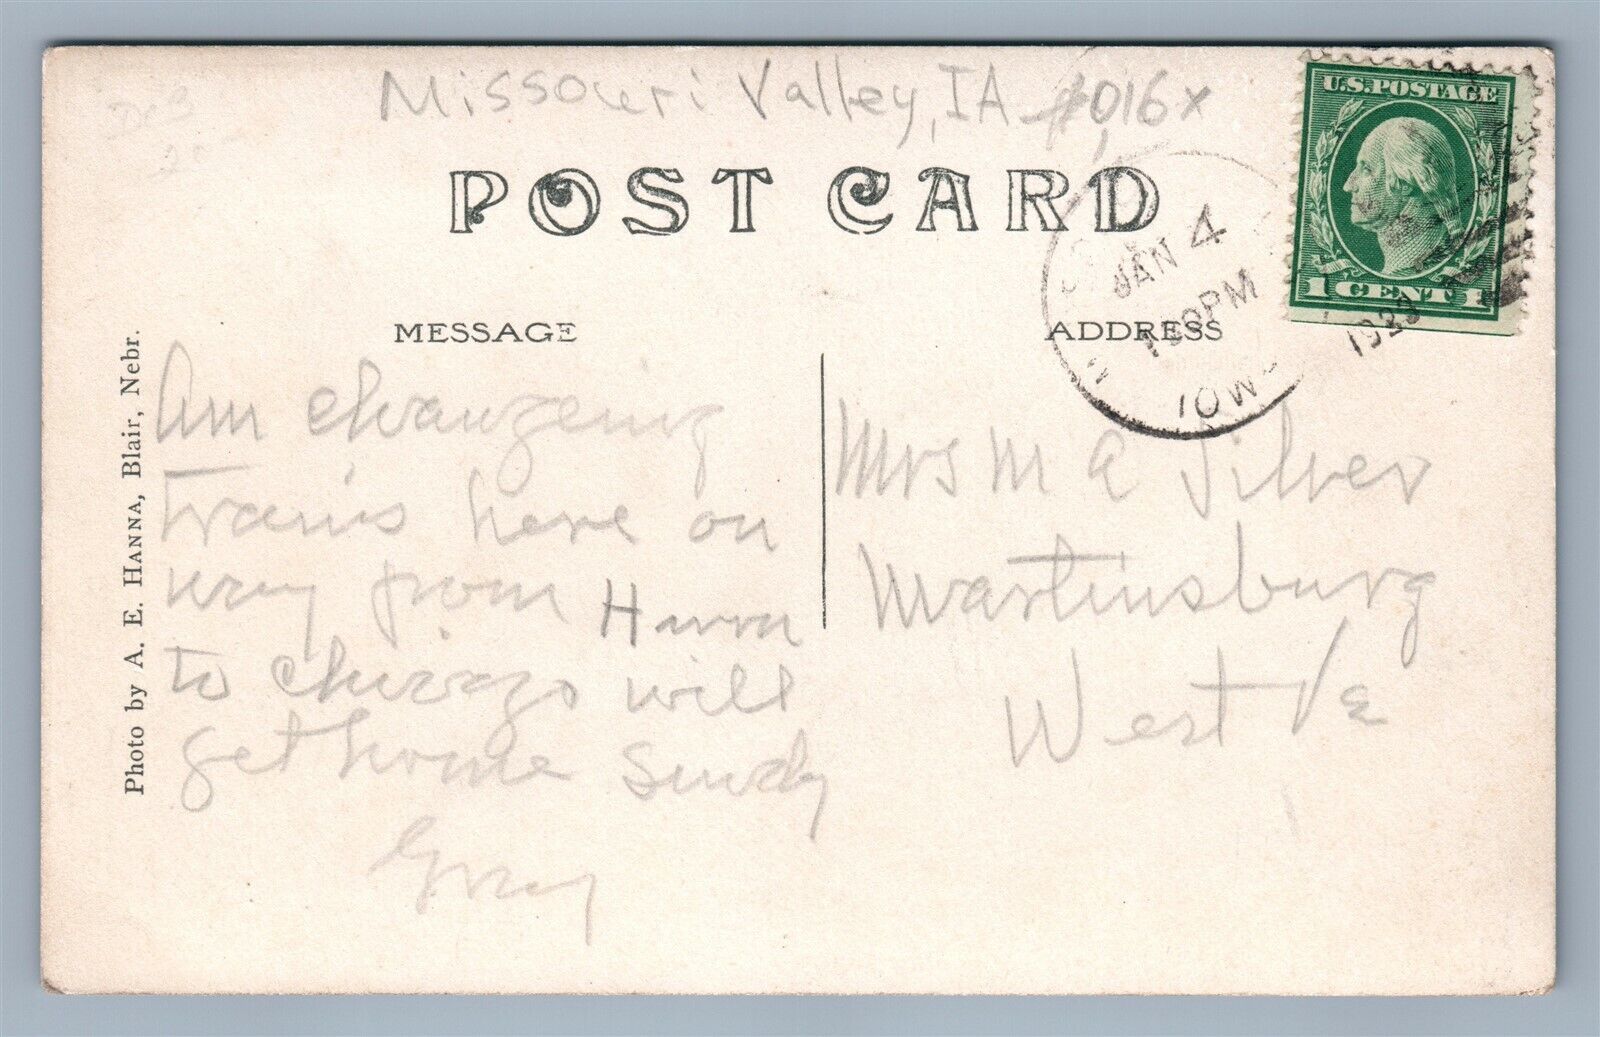 Missouri Valley, IA
POST CARD
U.S. POSTAGE
1 CENT 1
JAN 4
PM
IOWA
MESSAGE
ADDRESS
Photo by A. E. HANNA, Blair, Nebr.
Am changeing
trains here on
way from Huron
to Chicago will
get home
Mrs M A Silver
Martinsburg
West Va